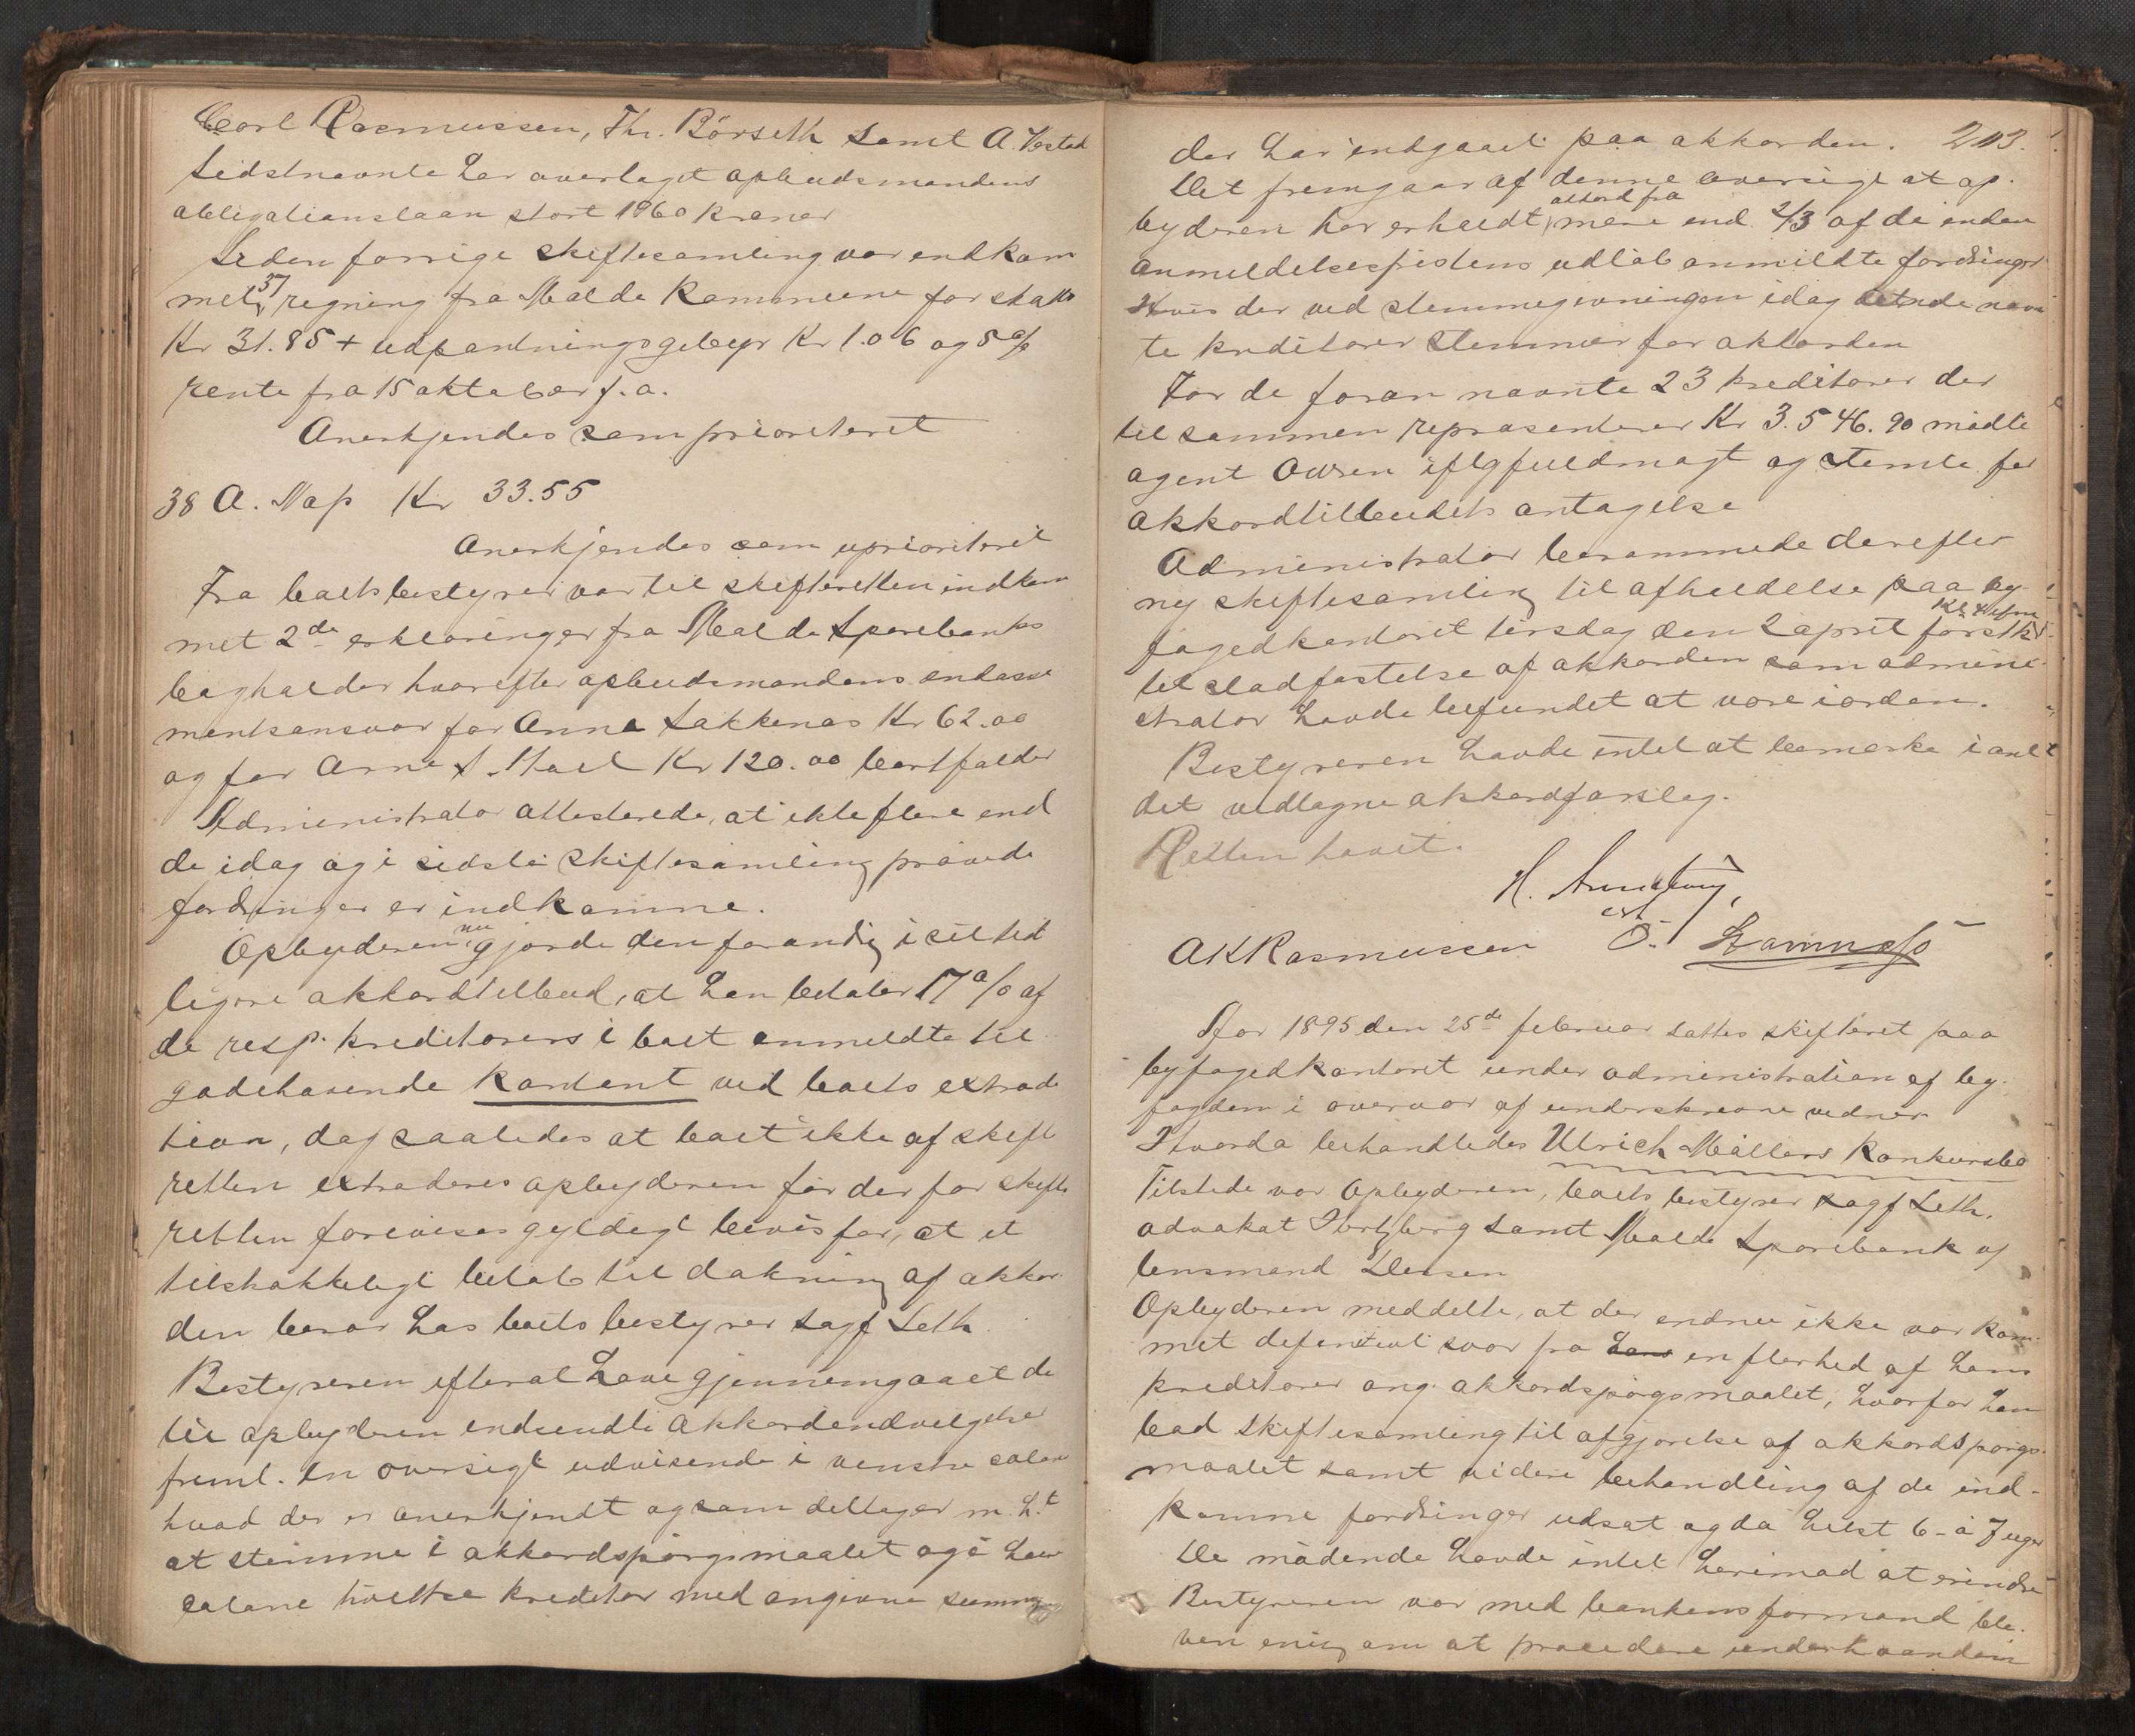 Carl Rasmussen, Thr. Börseth samt A. Vestad
sidstnævnte har overtaget opbudsmandens
obligationslaan stort 1060 kroner
Siden forrige skiftesamling var indkom
met 37 regning fra Molde Kommune for skatt
Kr 31.85 + udpantningsgebyr Kr 1.06 og 5 %
rente fra 15 oktober f.a.
Anerkjendes som prioriteret
38 A. Nap Kr 33.55
Anerkjendes som uprioriteret
Fra boets bestyrer var til skifteretten indkom
met 2de erklæringer fra Molde Sparebanks
bogholder hvorefter opbudsmandens endosse
mentsansvar for Anna Sakkenæs Kr 62.00
og for Arne S. Kr 120.00 bortfalder
Administrator attesterede, at ikke flere end
de idag og i sidste skiftesamling prøvede
fordringer er indkomne.
Opbyderen nu gjorde den forandrg i sit tid
ligere akkordtilbud, at han betaler 17 % af
de resp. kreditorers i boet anmeldte til
godehavende kontant ved boets extradi
tion, dog saaledes at boet ikke af skift
retten extraderes opbyderen før der for skifte
retten forevises gyldigt bevis for, at et
tilstrækkeligt beløb til dækning af akkor
den beror hos boets bestyrer sagf Leth.
Bestyreren efterat have gjennemgaaet de
til opbyderen indsendte akkordindvilgelser
freml. en oversigt udvisende i venstre colon
hvad der er anerkjendt og som deltager m. h.t
at stemme i akkordspørgsmaalet og i høir
colone hvilke kreditor med angivne summer
der har indgaaet paa akkorden. 203.
Det fremgaar af denne oversigt at op-
byderen har erholdt akkord fra mere end 2/3 af de inden
anmeldelsesfristens udløb anmeldte fordringer
Hvis der ved stemmegivningen idag nævn
te kreditorer stemmer for akkorden
For de foran nævnte 23 kreditorer der
til sammen repræsenterer Kr 3.546.90 mødte
agent Owren iflg fuldmagt og stemte for
akkordtilbudets antagelse
Administrator berammede derefter
ny skiftesamling til afholdelse paa by-
fogedkontoret tirsdag den 2 april førstk Kl 4 efm
til stadfæstelse af akkorden som admini-
strator havde befundet at være i orden.
Bestyreren havde intet at bemærke i anl
det vedtagne akkordforslag.
Retten hævet.
H.
cst
AKRasmussen Ö. Stamnesö
Aar 1895 den 25de februar sattes skifteret paa
byfogedkontoret under administration af by-
fogden i overvær af underskrevne vidner
Hvorda behandledes Ulrich Møllers Konkursbo
Tilstede var Opbyderen, boets bestyrer sagf Leth.
advokat Hertzberg samt Molde Sparebank v
lensmand
Opbyderen meddelte, at der endnu ikke var kom-
met definitivt svar fra hans en flerhed af hans
kreditorer ang. akkordspørgsmaalet, hvorfor han
bad skiftesamling til afgjørelse af akkordspørgs-
maalet samt videre behandling af de ind-
komne fordringer udsat og da helst 6 - à 7 uger
De mødende havde intet herimod at erindre
Bestyreren var med bankens formand ble-
ven enig om at procedere underhaanden